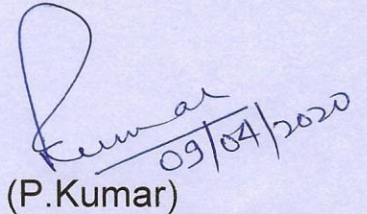 PKumar
09/04/2020
(P.Kumar)